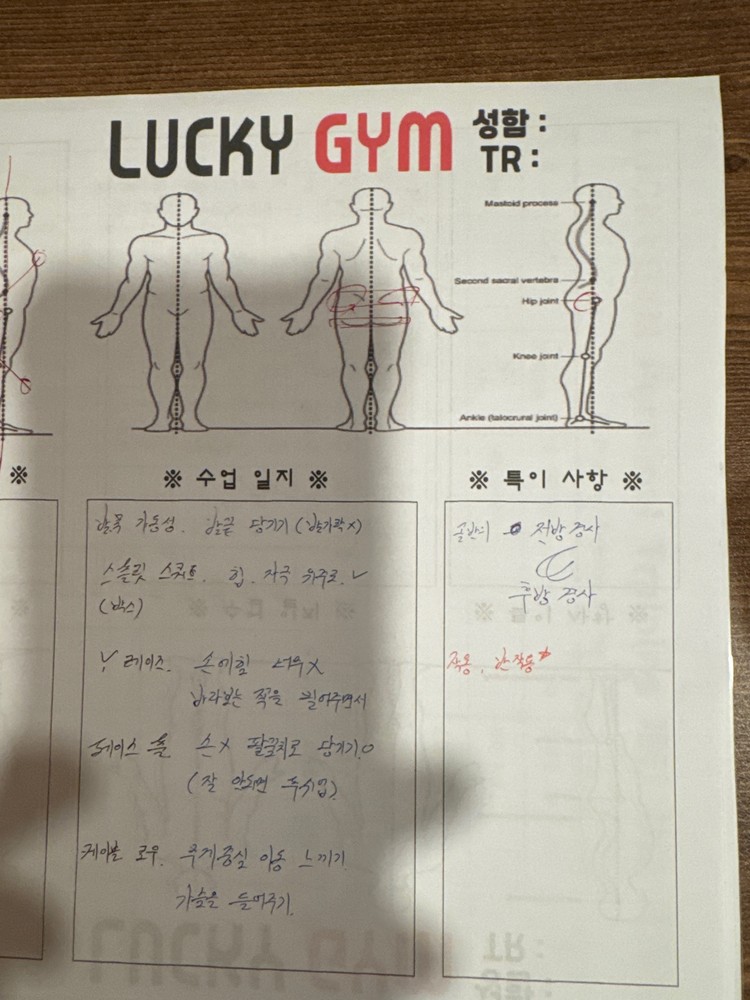 LUCKY GYM
성함 :
TR :
Mastoid process
Second sacral vertebra
Hip joint
Knee joint
Ankle (talocrural joint)
※
※ 수업 일지 ※
발목 가동성. 발끝 당기기 (발가락 x)
스플릿 스쿼트. 힙. 자극 위주로. ✓
(박스)
Y 레이즈. 손에힘 x
바라보는 쪽을 밀어주면서
페이스 풀 손x 팔꿈치로 당기기.o
(잘 안되면 푸시업)
케이블 로우. 무게중심 이동 느끼기.
가슴을 들어주기.
※ 특이 사항 ※
골반의 전방경사
후방 경사
작용, 반작용*